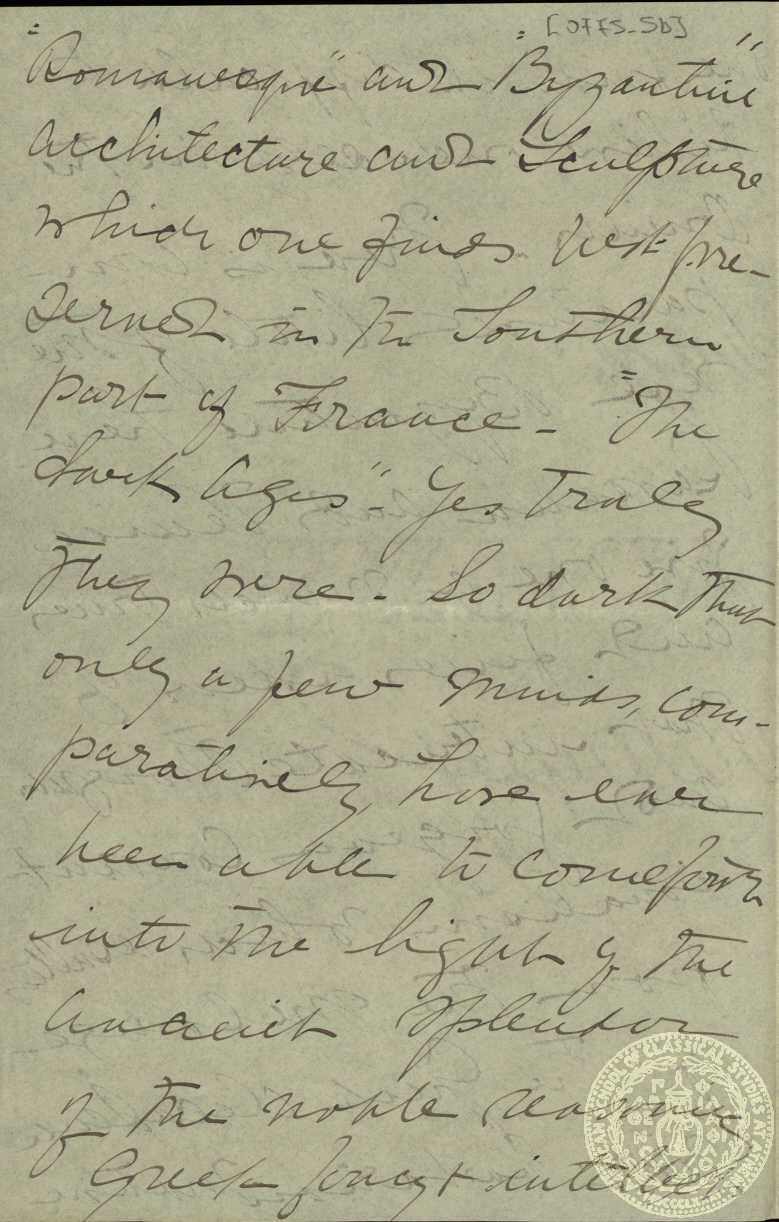 [OFFS-5b]
"Romanesque" and "Byzantine"
architecture and sculpture
which one finds best pre-
served in the Southern
part of France - "The
dark Ages" - Yes truly
they were - So dark that
only a few minds, com-
paratively, have ever
been able to come forth
into the light of the
ancient splendor
of the noble reasoning
Greek fancy & intellect.